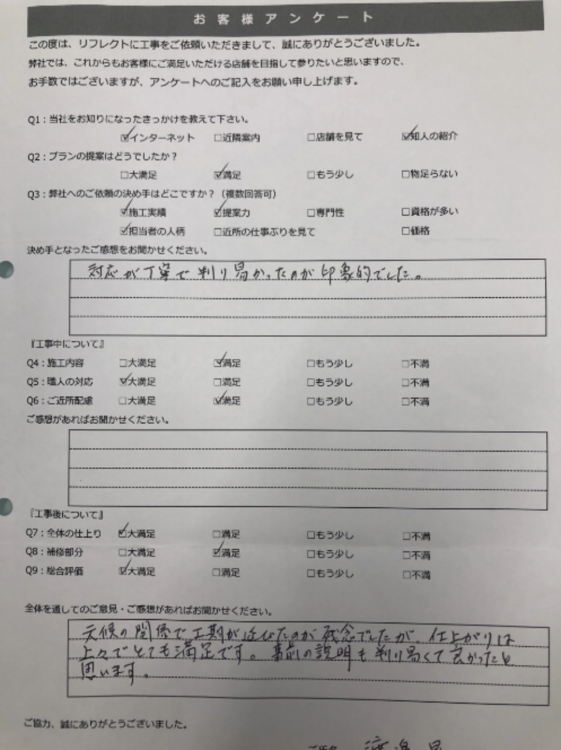 お客様アンケート
この度は、リフレクトに工事をご依頼いただきまして、誠にありがとうございました。
弊社では、これからもお客様にご満足いただける店舗を目指して参りたいと思いますので、
お手数ではございますが、アンケートへのご記入をお願い申し上げます。
Q1：当社をお知りになったきっかけを教えて下さい。
☑インターネット □近隣案内 □店舗を見て ☑知人の紹介
Q2：プランの提案はどうでしたか？
□大満足 ☑満足 □もう少し □物足らない
Q3：弊社へのご依頼の決め手はどこですか？（複数回答可）
☑施工実績 ☑提案力 □専門性 □資格が多い
☑担当者の人柄 □近所の仕事ぶりを見て □価格
決め手となったご感想をお聞かせください。
対応が丁寧で判り易かったのが印象的でした。
『工事中について』
Q4：施工内容 □大満足 ☑満足 □もう少し □不満
Q5：職人の対応 ☑大満足 □満足 □もう少し □不満
Q6：ご近所配慮 □大満足 ☑満足 □もう少し □不満
ご感想があればお聞かせください。
『工事後について』
Q7：全体の仕上り ☑大満足 □満足 □もう少し □不満
Q8：補修部分 □大満足 ☑満足 □もう少し □不満
Q9：総合評価 ☑大満足 □満足 □もう少し □不満
全体を通してのご意見・ご感想があればお聞かせください。
天候の関係で工期が延びたのが残念でしたが、仕上がりは
上々でとても満足です。事前の説明も判り易くて良かったと
思います。
ご協力、誠にありがとうございました。